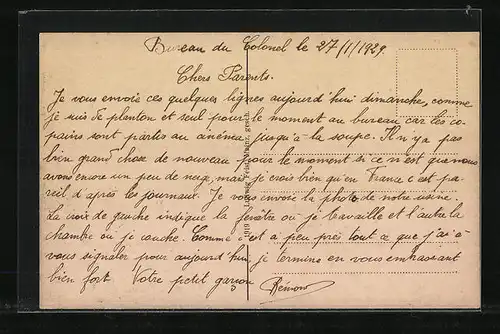 Bureau du Colonel le 27/1/1929.
Chers Parents.
Je vous envoie ces quelques lignes aujourd'hui dimanche, comme
je suis de planton et seul pour le moment au bureau car les co-
pains sont partis au cinéma jusqu'à la soupe. Il n'y a pas
bien grand chose de nouveau pour le moment si ce n'est que nous
avons encore un peu de neige, mais je crois bien qu'en France c'est pa-
reil d'après les journaux. Je vous envoie la photo de notre usine.
La croix de gauche indique la fenêtre ou je travaille et l'autre la
chambre ou je couche. Comme c'est a peu près tout ce que j'ai à
vous signaler pour aujourd'hui je termine en vous embrassant
bien fort Votre petit garçon
Rémond
gesch.